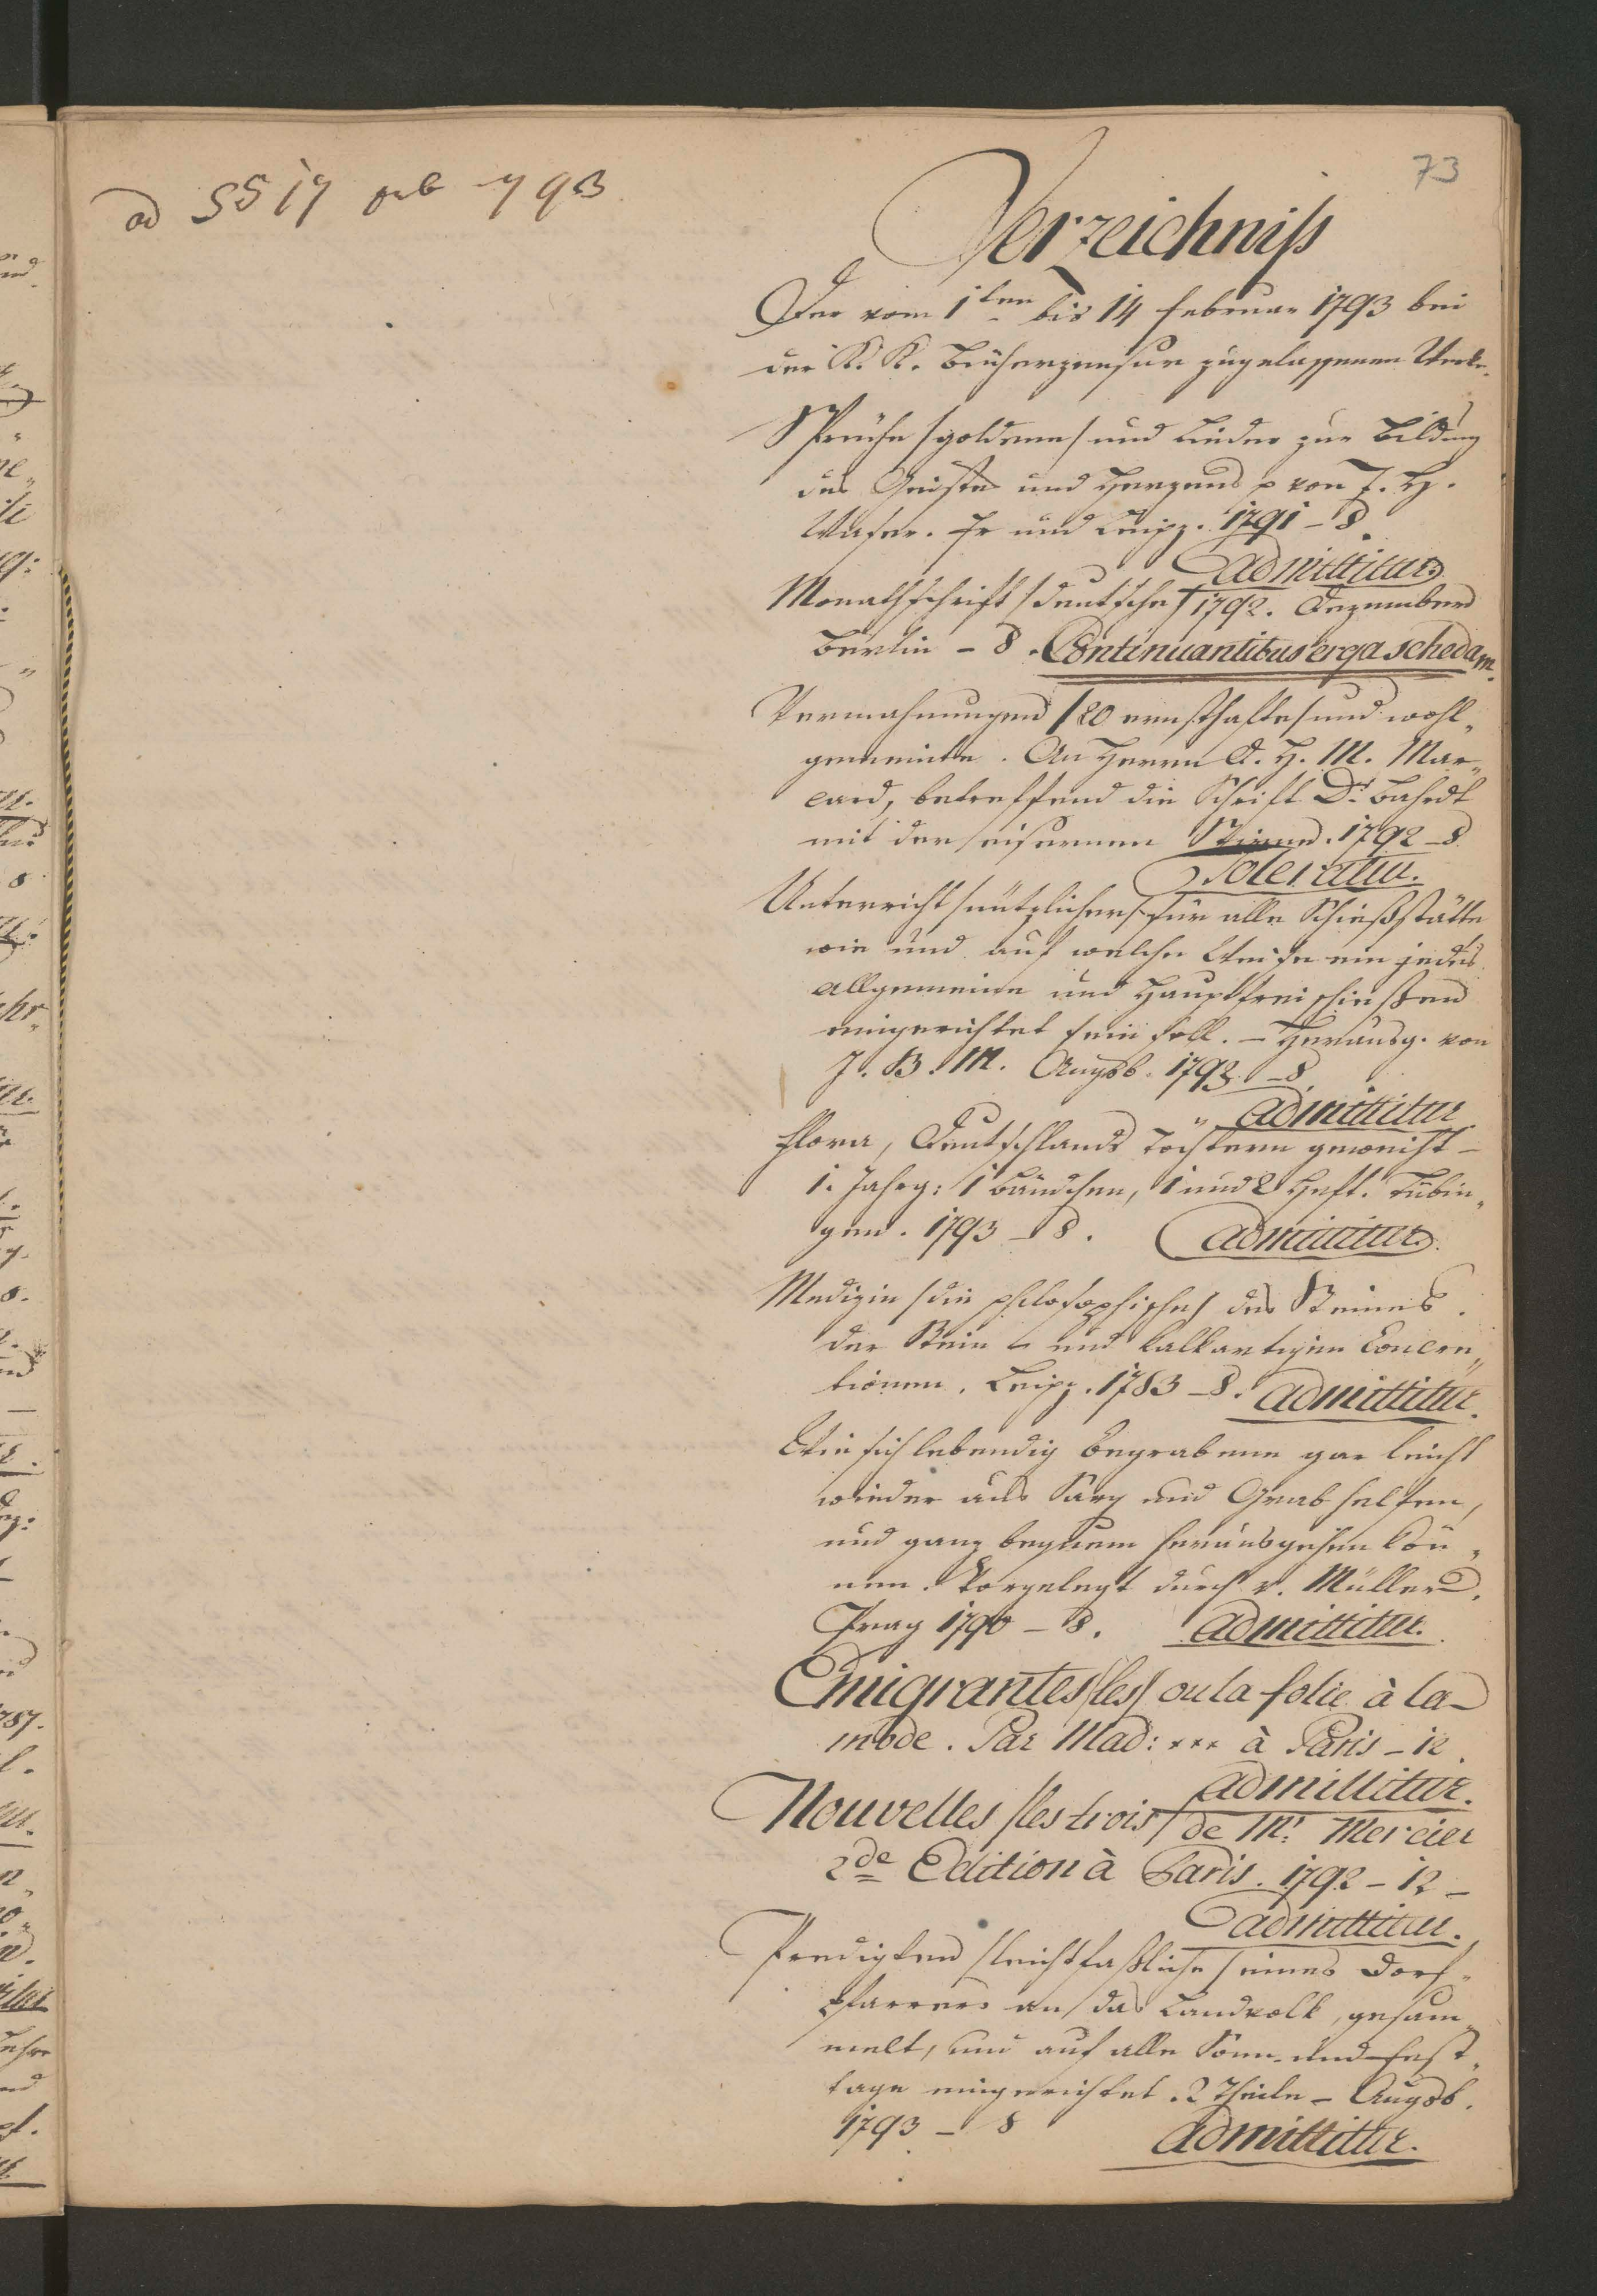 73
ad 5517 pub 793
Verzeichniß
Der vom 1ten bis 14 Februar 1793 bei
der K. K. Bücherzensur zugelassenen Werke.
Sprüche /goldene/ und Lieder zur Bildung
des Geistes und Herzens p von J. H.
Waser. Fr und Leipz. 1791 – 8.
admittitur
Monathschrift /deutsche/ 1792. Dezember
Berlin – 8. Continuantibus erga schedam.
Vermahnungen /20 ernsthafte/ und wohl„
gemeinte. An Herrn A. H. M. Mar„
card, betreffend die Schrift Dr. Bahrdt
mit der eisernen Stirne. 1792 – 8
Toleratur.
Unterricht /nützlicher/ für alle Schießstätte
wie und auf welche Weise ein jedes
allgemeine und Hauptfreischießen
eingerichtet sein soll. – Herausg. von
J. B. M. Augsb. 1793 – 8.
admittitur
Flora, Deutschlands Töchtern geweiht –
1. Jahrg: 1 Bändchen, 1 und 2 Heft. Tübin„
gen. 1793 – 8. admittitur
Medizin /die philosophische/ des Steines.
der Stein - und kalkartigen Concre„
tionen. Leipz. 1783 – 8. admittitur.
Wie sich lebendig Begrabene gar leicht
wieder aus Sarg und Grab helfen,
und ganz bequem herausgehen kön„
nen. Vorgelegt durch v. Müller.
Prag 1790 – 8. admittitur.
Emigrantes /les/ ou la folie à la
mode. Par Mad: *** à Paris – 12.
admittitur.
Nouvelles /les trois/ de Mr. Mercier
2de Edition à Paris. 1792 – 12 –
admittitur.
Predigten /leichtfaßliche/ eines Dorf„
pfarrers an das Landvolk, gesam„
melt, und auf alle Sonn- und Fest„
tage eingerichtet. 2 Theile – Augsb.
1793 – 8
admittitur.